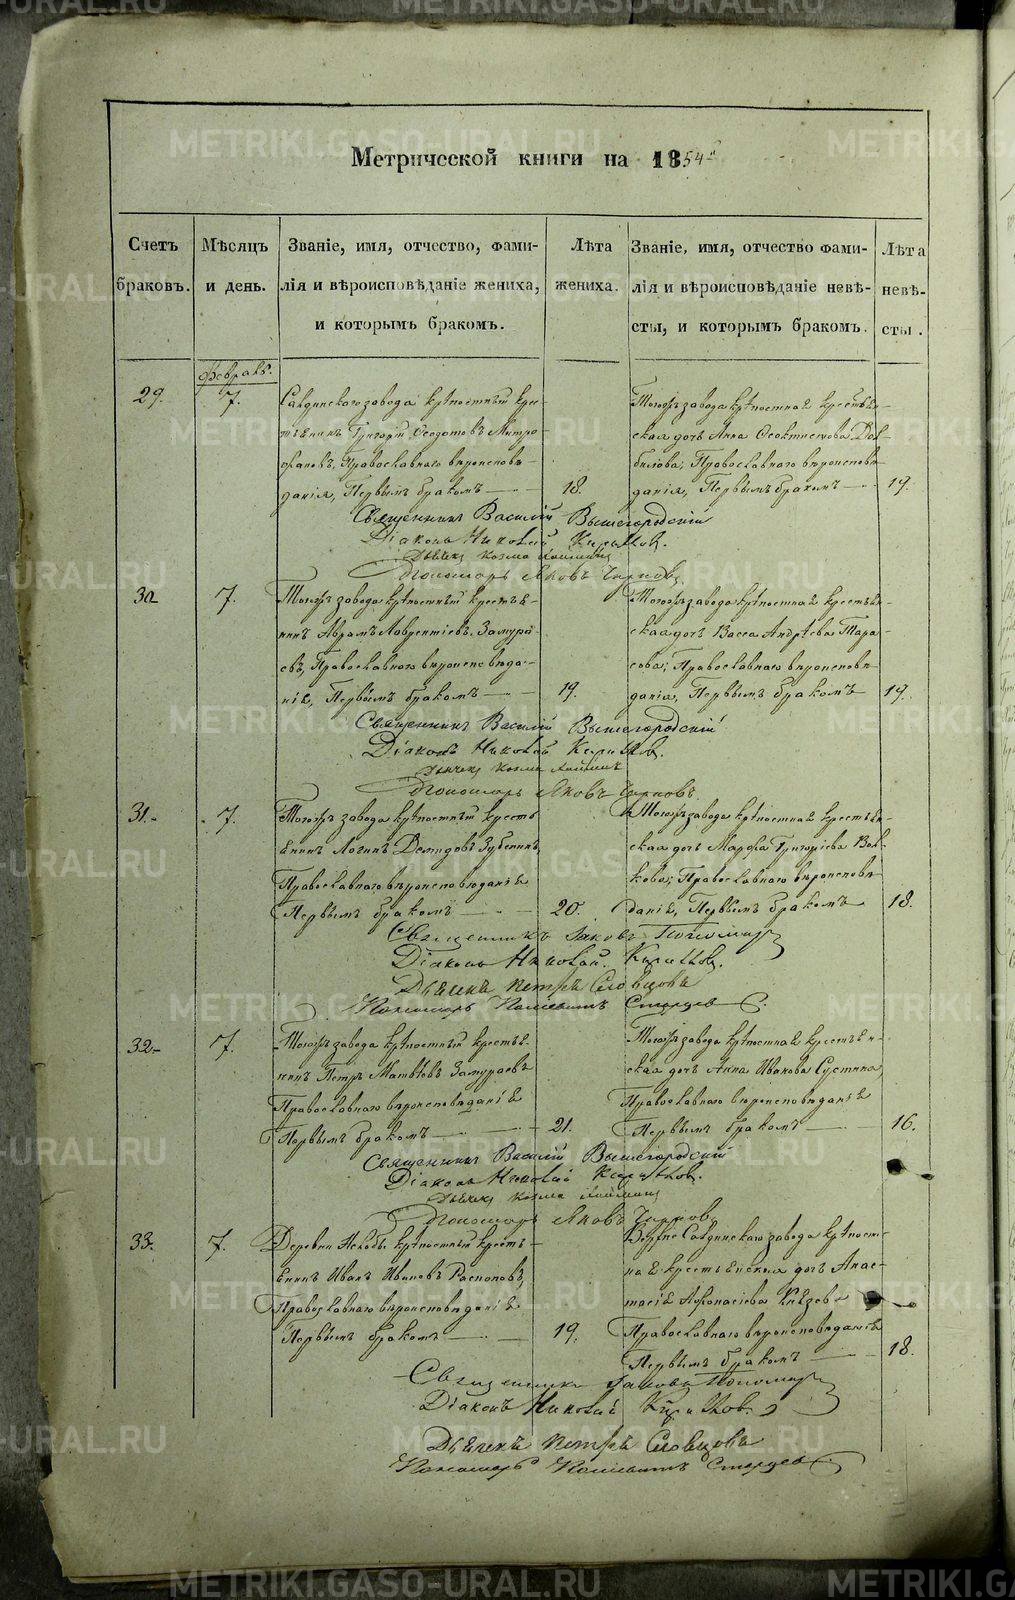 Метрической книги на 1854 г
Счетъ браковъ.
Мѣсяцъ и день.
Званіе, имя, отчество, фами-
лія и вѣроисповѣданіе жениха,
и которымъ бракомъ.
Лѣта жениха.
Званіе, имя, отчество фами-
лія и вѣроисповѣданіе невѣ-
сты, и которымъ бракомъ.
Лѣта невѣ-
сты.
Февраль.
29.
7.
завода крѣпостный кре-
стьянинъ Григорій Ѳедотовъ Митро-
фановъ, Православнаго вѣроисповѣ-
данія, Первымъ бракомъ
18.
Тогожъ завода крѣпостная крестьян-
ская дочь Анна
Православнаго вѣроисповѣ-
данія, Первымъ бракомъ
19.
Священникъ Василій Вышегородскій
Діаконъ Николай
Дьячекъ Козма
Пономарь Яковъ
30
7.
Тогожъ завода крѣпостный крестья-
нинъ Аврамъ Лаврентіевъ Замура-
евъ, Православнаго вѣроисповѣда-
нія, Первымъ бракомъ
19.
Тогожъ завода крѣпостная крестьян-
ская дочь Васса Андрѣева Тара-
сова, Православнаго вѣроисповѣ-
данія, Первымъ бракомъ
19.
Священникъ Василій Вышегородскій
Діаконъ Николай
Дьячекъ Козма
Пономарь Яковъ
31.
7.
Тогожъ завода крѣпостный кресть-
янинъ Логинъ Демидовъ Зубенинъ,
Православнаго вѣроисповѣданія
Первымъ бракомъ
20.
Тогожъ завода крѣпостная крестьян-
ская дочь Марфа Григоріева Вол-
кова, Православнаго вѣроисповѣ-
данія, Первымъ бракомъ
18.
Священникъ Іаковъ Пономарев
Діаконъ Николай
Дьячекъ Петръ Словцовъ
Пономарь Старцев
32
7.
Тогожъ завода крѣпостный крестья-
нинъ Петръ Матвѣевъ Замураевъ
Православнаго вѣроисповѣданія
Первымъ бракомъ
21.
Тогожъ завода крѣпостная крестьян-
ская дочь Анна Иванова Сустина,
Православнаго вѣроисповѣданія
Первымъ бракомъ
16.
Священникъ Василій Вышегородскій
Діаконъ Николай
Дьячекъ Козма
Пономарь Яковъ
33.
7.
Деревни крѣпостный кресть-
янинъ Иванъ Ивановъ Распоповъ,
Православнаго вѣроисповѣданія
Первымъ бракомъ
19.
завода крѣпост-
ная крестьянская дочь Анас-
тасія Афонасіева Князева
Православнаго вѣроисповѣданія
Первымъ бракомъ
18.
Священникъ Іаковъ Пономарев
Діаконъ Николай
Дьячекъ Петръ Словцовъ
Пономарь Старцев
METRIKI.GASO-URAL.RU